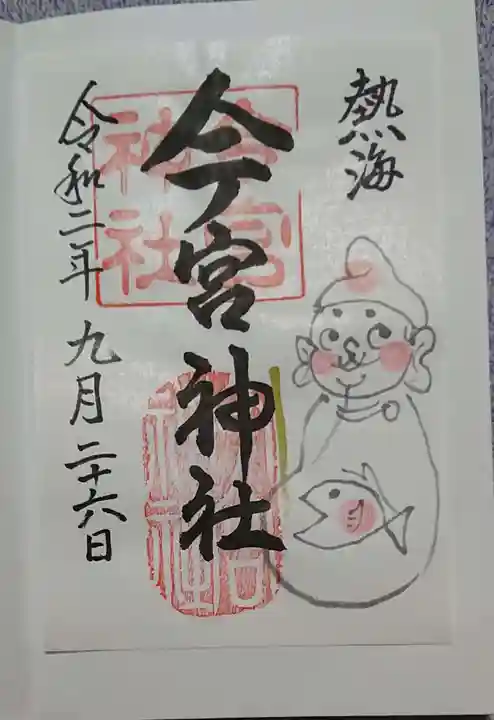 熱海
今宮神社
今宮
神社
令和二年 九月 二十六日